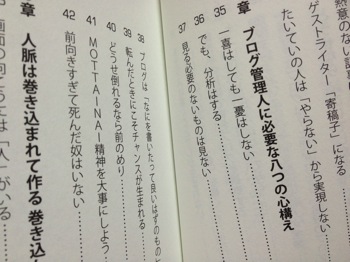 熱意のない
ゲストライター「寄稿子」になる
たいていの人は「やらない」から実現しない
章 ブログ管理人に必要な八つの心構え
35 一喜はしても一憂はしない
36 でも、分析はする
37 見る必要のないものは見ない
38 ブログは「なにを書いたって良いはずのもの
39 転んだときにこそチャンスが生まれる
40 どうせ倒れるなら前のめり
41 MOTTAINAI精神を大事にしよう
42 前向きすぎて死んだ奴はいない
章 人脈は巻き込まれて作る 巻き込
画面の向こうには「人」がいる